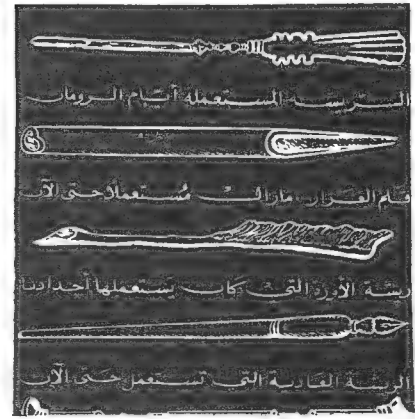 الريشة المستعملة أيام الرومان
قلم الغزار مازالت مستعملا حتى الآن
ريشة الأوزة التي كان يستعملها أجدادنا
الريشة العادية التي تستعمل حتى الآن